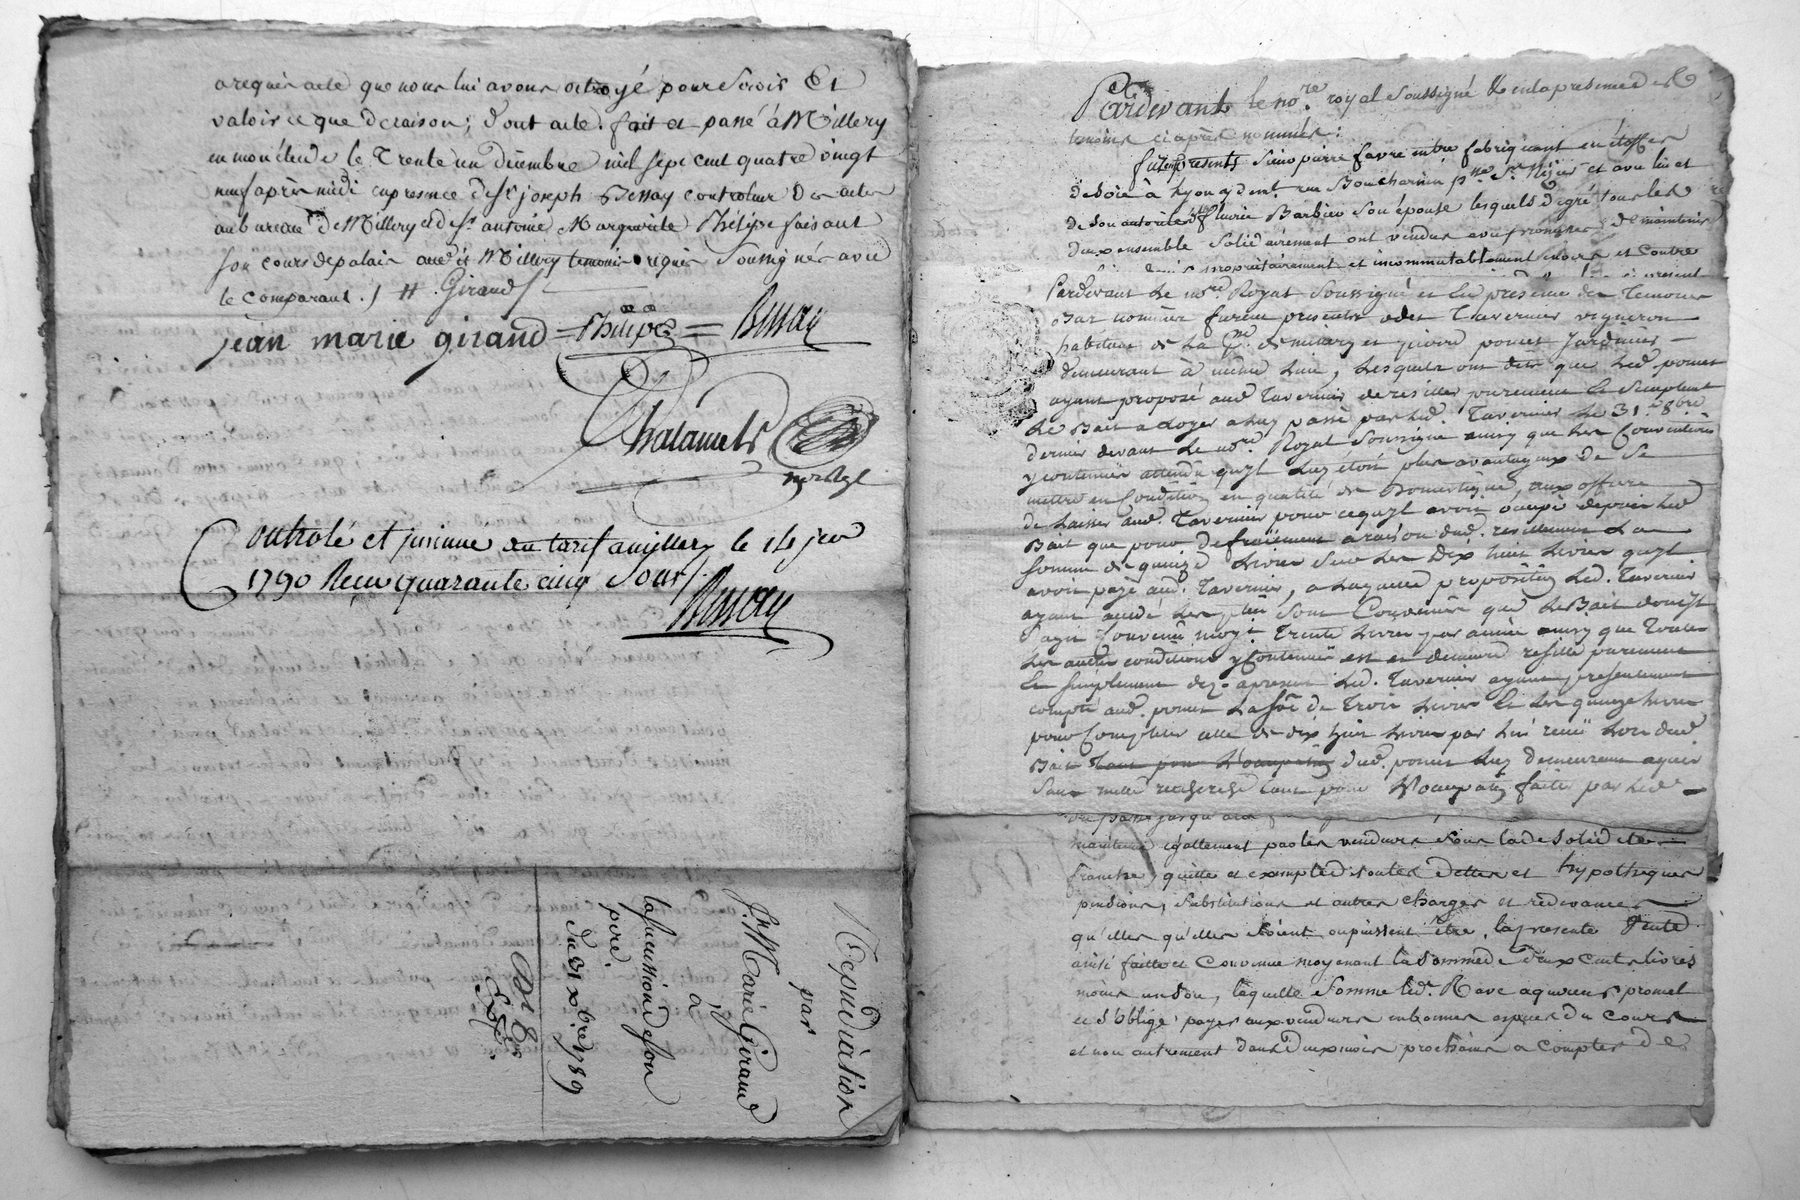 a requis acte que nous lui avons octroyé pour servir Et
valoir ce que de raison; dont acte. fait et passé à Millery
en mon étude le Trente un décembre mil sept cent quatre vingt
neuf après midi en presence de Sr joseph Bessay controleur des actes
au bureau de Millery et de Sr antoine Marguerite Philipe faisant
son cours de palais aud.t Millery temoins requis soussignés avec
le comparant. J M Giraud
jean marie girand = Philipe = Bessay
Chalamels
Controlé et insinué au tarif a millery le 14 jer
1790 Recu quarante cinq sous
Bessay
Repudiation
par
J. Marie Giraud
à
la succession de son
pere.
du 31 xbre 1789
Expé.
Pardevant le nore. royal soussigné & en la presence des
temoins ci après nommés:
furent presents Sieur pierre favre maitre fabriquant en étoffes
de soie à Lyon y demt rue Bouchanin psse St Nizier et avec lui et
de son autorité Barbier son épouse lesquels de gré tous les
deux ensemble solidairement ont vendus avec promesse de maintenir
proprietairement et incommutablement envers et contre
Pardevant Le nore Royal soussigné et En présence des Temoins
Bas nommés furent presents Tavernier vigneron
habitant de La psse de millery et poncet Jardinier
demeurant à même Lieu, Lesquels ont dit que Led. poncet
ayant proposé aud. Tavernier de resilier purement Et simplement
Le Bail a Loyer a Luy passé par Led. Tavernier Le 31 8bre
dernier devant Le nore Royal soussigné ainsy que Les Conventions
y contenues attendu qu'yl Luy étoit plus avantageux de Se
mettre en Condition en qualité de Domestique, aux offres
de Laisser aud. Tavernier pour ce qu'yl avoit occupé depuis Led.
Bail que pour defraiement a raison dud. resiliement La
somme de quinze Livres sur Les Dix huit Livres qu'yl
avoit payé aud. Tavernier, a Laquelle proposition Led. Tavernier
ayant accedé Les pties sont Convenües que Le Bail dont il
s'agit Trente Livres par année ainsy que Toutes
Les autres conditions y Contenües est et demeure resilié purement
Et simplement dez apresent Led. Tavernier ayant presentement
compté aud. poncet La some de Trois Livres Et Les quinze Livres
pour Completer celle de dix huit Livres par Lui reçüe Lors dud.
Bail dud. poncet Luy demeurant acquis
sans nulle recherche tant pour L'occupation faite par Led.
maintenu egallement par les vendeurs sous la de solidité
franche, quitte et exempte de toutes dettes et hypotheques
pensions, substitutions et autres charges et redevances
qu'elles qu'elles soient ou puissent être. la presente Vente
ainsi faitte et convenue moyenant la somme de deux cents livres
moins un sou, laquelle somme led. Rave acquereur promet
et s'oblige payer aux vendeurs en bonnes especes du cours
et non autrement dans deux mois prochains a compter de